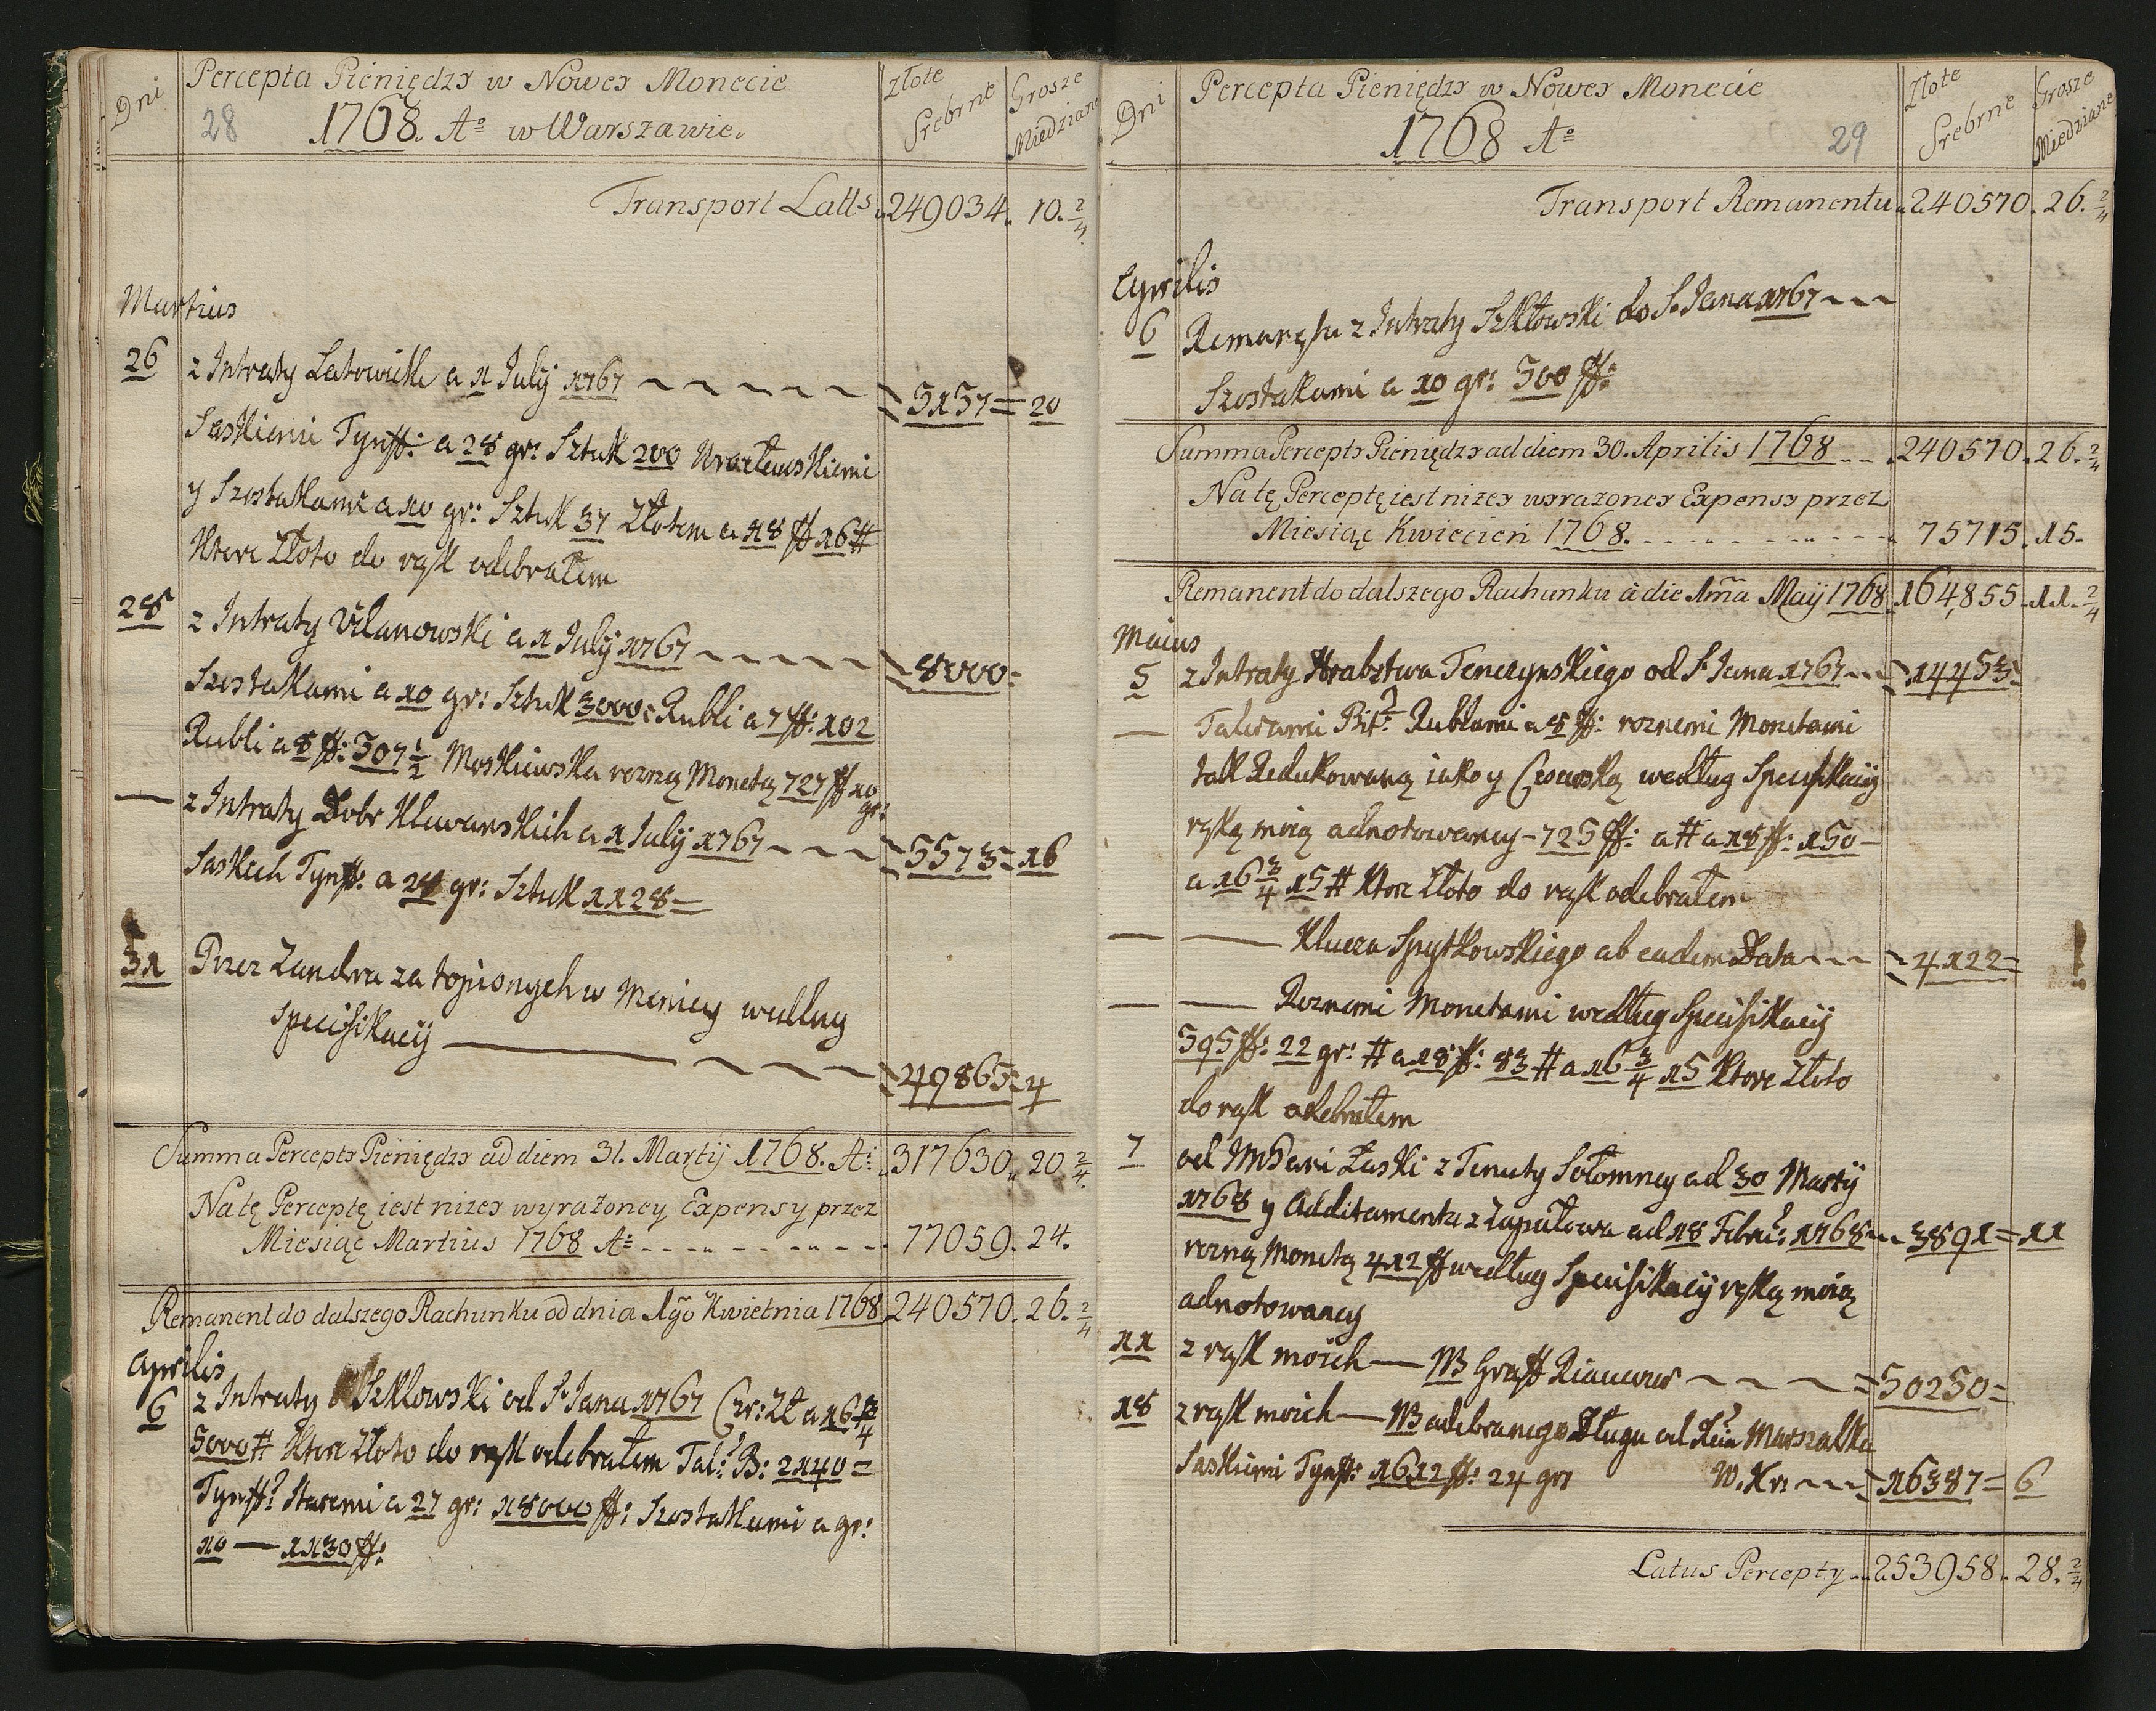 Dni
Percepta Pieniędzy w Nowey Monecie
Złote Srebrne
Grosze Miedziane
28
1768. Aº w Warszawie.
Transport Latts 249034. 10. 2/4
Martius
26 z Intraty Latowickie a 1 July 1767 5157 = 20
Saskiemi Tynff: a 28 gr: Sztuk 200 Wrocławskiemi
y Szostakami a 10 gr: Sztuk 37 Złotem a 18 ff 16 #
Ktore Złoto do rąk odebrałem
28 z Intraty Vilanowski a 1 July 1767 8000 =
Szostakami a 10 gr: Sztuk 3000: Rubli a 7 ff: 102
Rubli a 8 ff: 307 1/2 Moskiewska rozną Monetą 727 ff 10 gr:
— z Intraty Dobr Klewanskich a 1 July 1767 5573 = 16
Saskich Tynff: a 24 gr: Sztuk 1128 =
31 Przez Zandra za topionych w Menicy według
Specifikacij 49865 = 4
Summa Percepty Pieniędzy ad diem 31. Martij 1768. Aº: 317630. 20. 2/4
Na tę Perceptę iest nizey wyrażoney Expensy przez
Miesiąc Martius 1768 Aº 77059. 24.
Remanent do dalszego Rachunku od dnia 1go Kwietnia 1768 240570. 26. 2/4
Aprilis
6 z Intraty Szklowski od S. Jana 1767 Czr: Zł a 16 3/4
5000 # Ktore Złoto do rąk odebrałem Tal: B: 2140 =
Tynff: Staremi a 27 gr: 18000 ff: Szostakami a gr:
10 — 1130 ff:
Dni
Percepta Pieniędzy w Nowey Monecie
Złote Srebrne
Grosze Miedziane
1768 Aº
29
Transport Remanentu 240570. 26. 2/4
Aprilis
6 z Intraty Szkłowski do S. Jana 1767
Szostakami a 10 gr: 500 ff:
Summa Percepty Pieniędzy ad diem 30. Aprilis 1768 240570. 26. 2/4
Na tę Perceptę iest nizey wyrażoney Expensy przez
Miesiąc Kwiecień 1768. 75715. 15.
Remanent do dalszego Rachunku à die 1ma Maij 1768 164,855. 11. 2/4
Maius
5 z Intraty Hrabztwa Tenczynskiego od S. Jana 1767 14453 =
— Talerami Bit: Rublami a 8 ff: roznemi Monetami
tak Redukowaną iako y według Specifikacij
ręką moią adnotowaney - 725 ff: a # a 18 ff: 150 —
a 16 3/4 15 # Ktore Złoto do rąk odebrałem
— — Klucza Spytkowskiego ab eadem Data 4122 =
— — Roznemi Monetami według Specifikacij
595 ff: 22 gr: # a 18 ff: 83 # a 16 3/4 15 Ktore Złoto
do rąk odebrałem
7 od Łaski z Tenuty Sołomney ad 30 Martij
1768 y Additamentu z Łapułowa ad 18 Febru: 1768 3891 = 11
rozną Monetą 412 ff według Specifikacij ręką moią
adnotowaney
11 z rąk moich — NB Graff 50250 =
18 z rąk moich — NB odebranego Długu od Marszałka
Saskiemi Tynff: 1612 ff: 24 gr W. Kr: 16387 = 6
Latus Percepty 253958. 28. 2/4